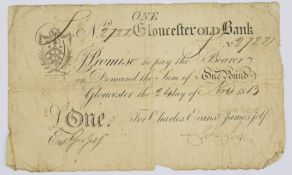 ONE
No 2722 Gloucester OLD Bank
No 2722
I Promise to pay the Bearer
on Demand the Sum of One Pound
Gloucester the 24 day of Novr 1813
£ One. For Charles Evans & James Jelf
Entd